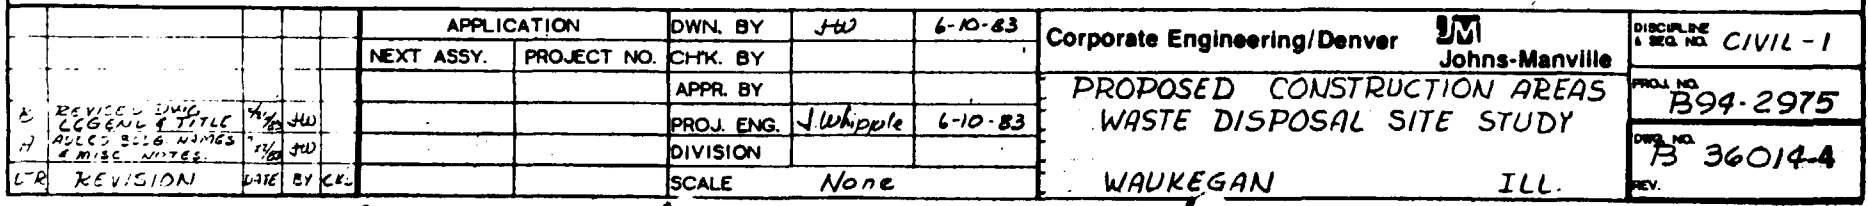 B REVISED DWG. LEGEND & TITLE JW
A ADDED BLDG NAMES & MISC NOTES. JW
LTR REVISION DATE BY CK.
APPLICATION
NEXT ASSY. PROJECT NO.
DWN. BY JW 6-10-83
CHK. BY
APPR. BY
PROJ. ENG. J. Whipple 6-10-83
DIVISION
SCALE None
Corporate Engineering/Denver JM
Johns-Manville
PROPOSED CONSTRUCTION AREAS
WASTE DISPOSAL SITE STUDY
WAUKEGAN ILL.
DISCIPLINE & SEQ. NO. CIVIL-1
PROJ. NO. B94-2975
DWG. NO. B 36014-4
REV.